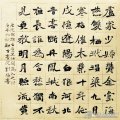 盧家少婦鬱金堂海
燕雙棲玳瑁梁九月
寒砧催木葉十年征
戍憶遼陽白狼河北
音書斷丹鳳城南秋
夜長誰為含愁獨不
見更教明月照流黃